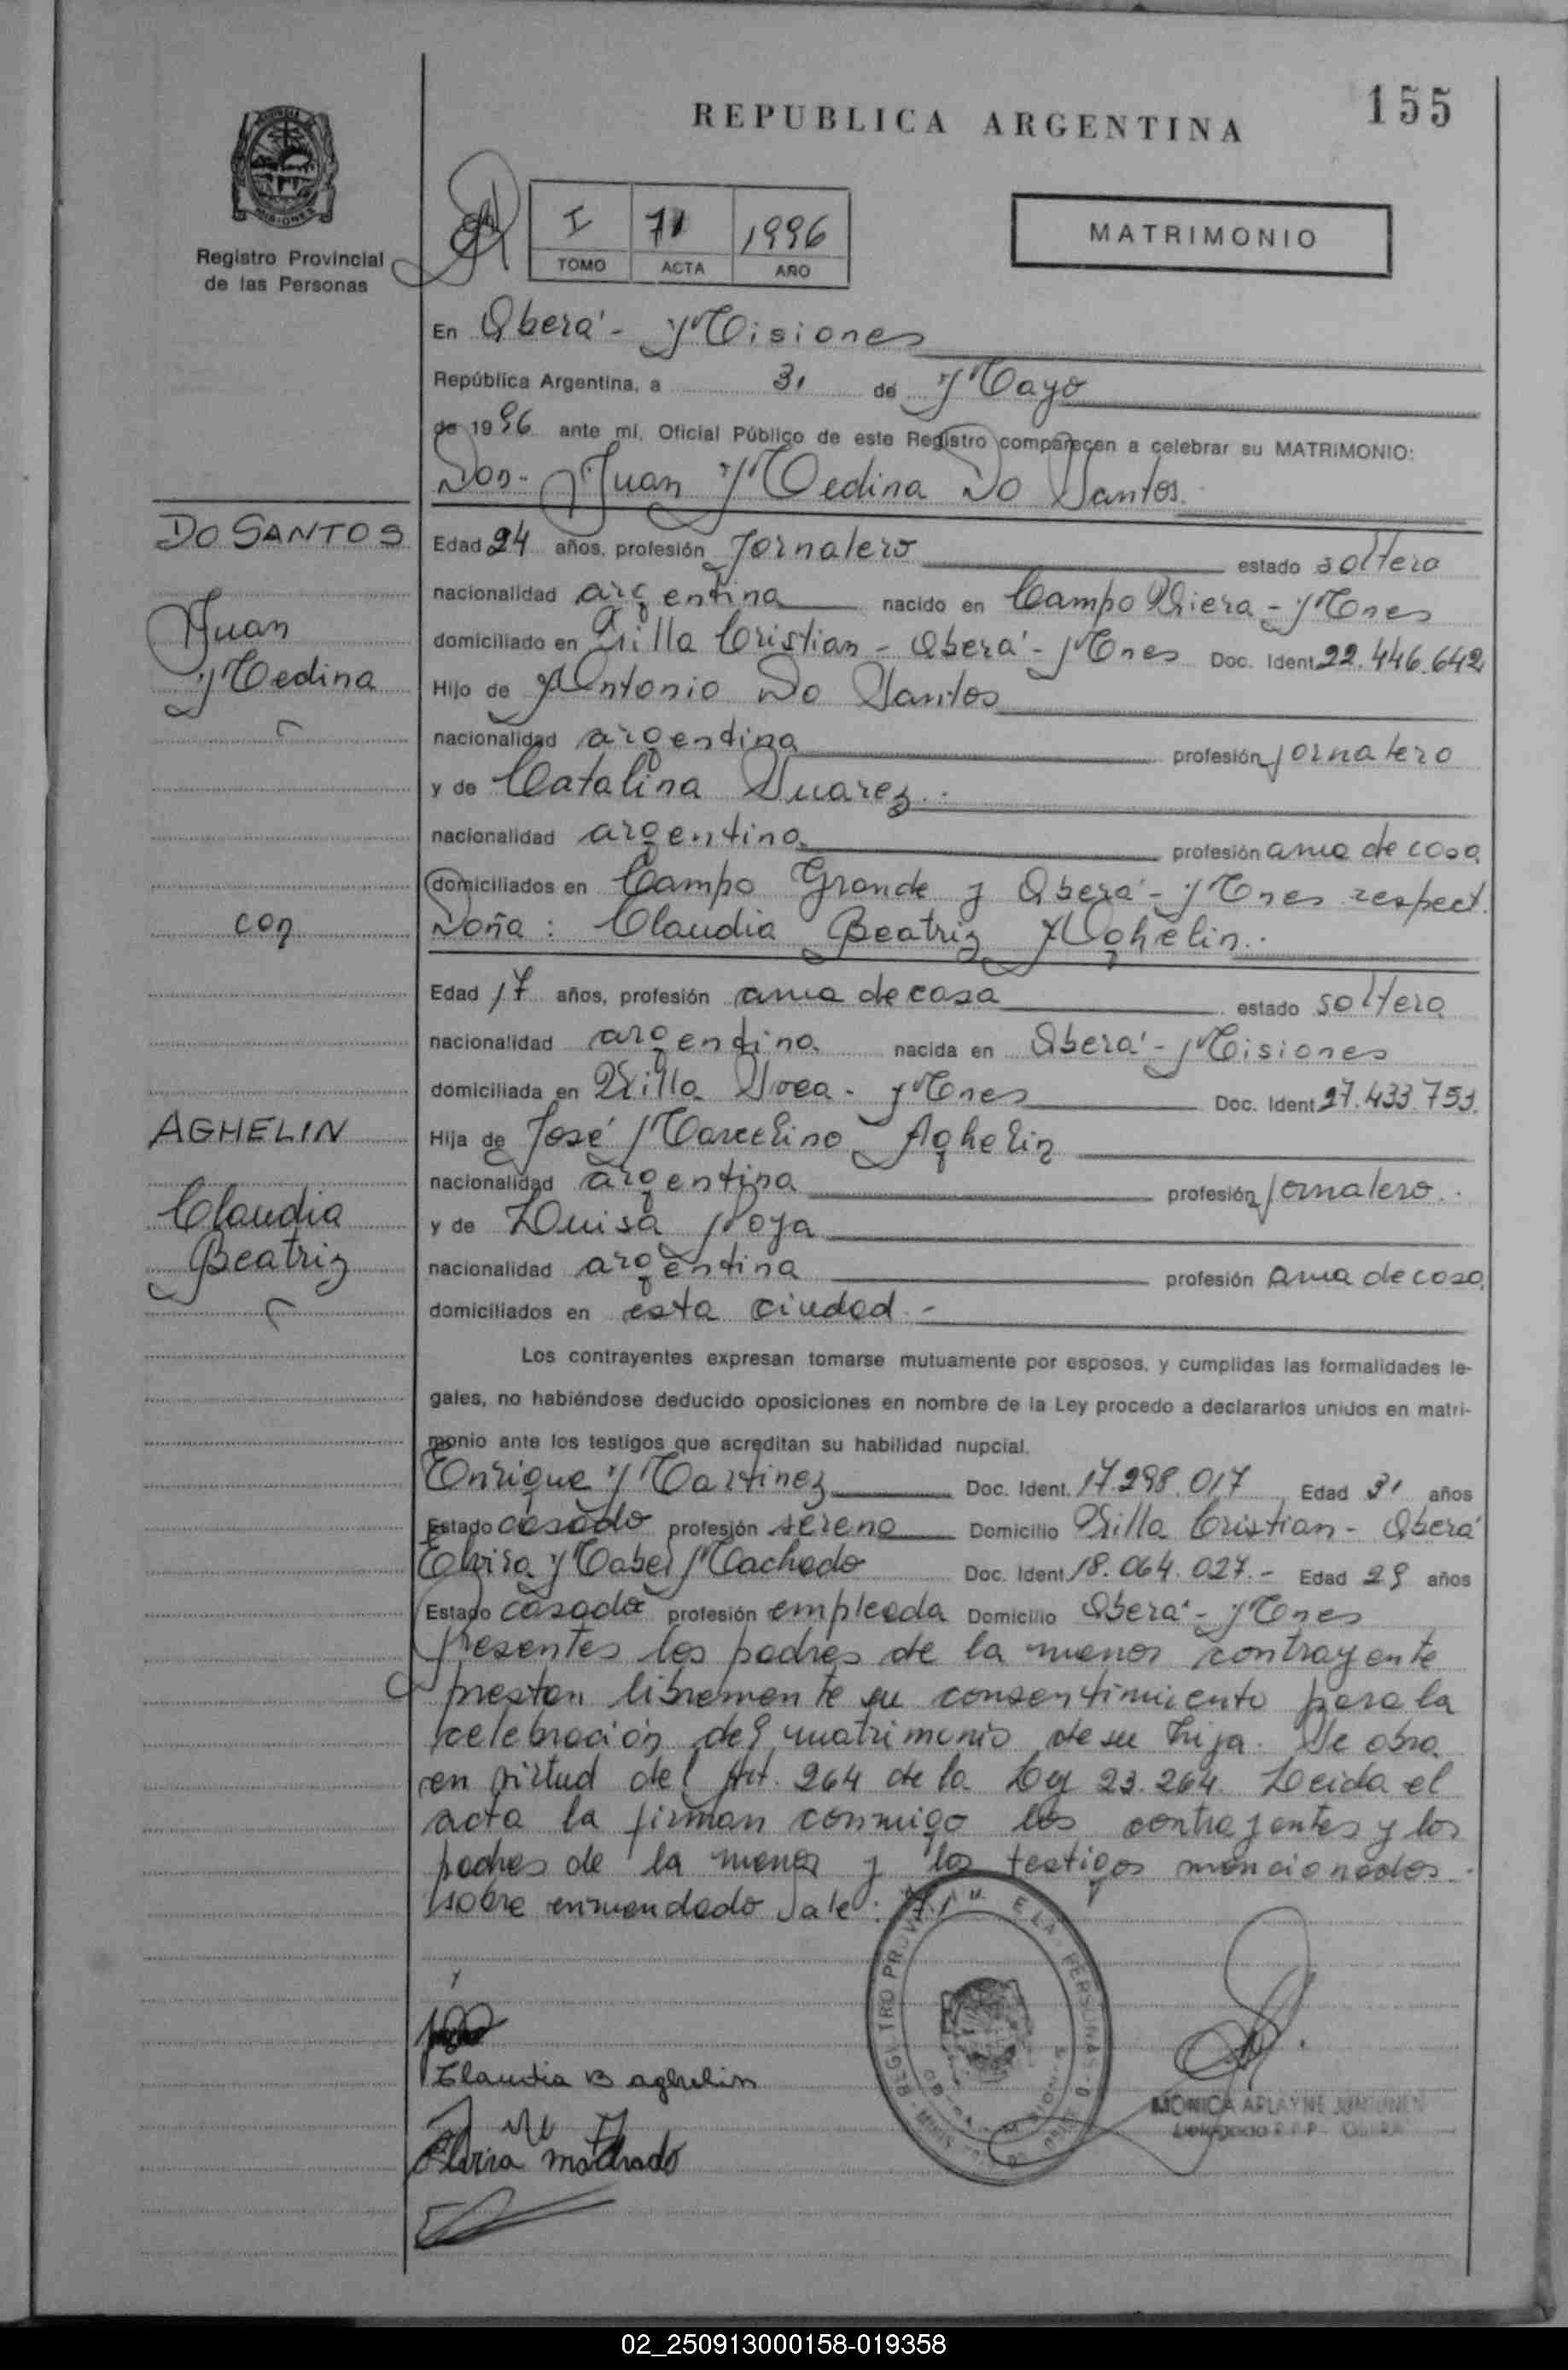 155
REPUBLICA ARGENTINA
MISIONES
Registro Provincial
de las Personas
I 71 1996
TOMO ACTA AÑO
MATRIMONIO
En Oberá - Misiones
República Argentina, a 31 de Mayo
de 1996 ante mí, Oficial Público de este Registro comparecen a celebrar su MATRIMONIO:
Don- Juan Medina Do Santos.
DO SANTOS
Juan
Medina
Edad 24 años, profesión Jornalero estado soltero
nacionalidad argentina nacido en Campo Viera - Mnes
domiciliado en Villa Cristian - Oberá - Mnes Doc. Ident. 22.446.642
Hijo de Antonio Do Santos
nacionalidad argentina profesión jornalero
y de Catalina Suarez.
nacionalidad argentina profesión ama de casa
domiciliados en Campo Grande y Oberá - Mnes respect.
con
Doña: Claudia Beatriz Aghelin.
Edad 17 años, profesión ama de casa estado soltera
nacionalidad argentina nacida en Oberá - Misiones
domiciliada en Villa - Mnes Doc. Ident. 27.433.753.
AGHELIN
Claudia
Beatriz
Hija de José Marcelino Aghelin
nacionalidad argentina profesión jornalero.
y de Luisa
nacionalidad argentina profesión ama de casa
domiciliados en esta ciudad -
Los contrayentes expresan tomarse mutuamente por esposos, y cumplidas las formalidades le-
gales, no habiéndose deducido oposiciones en nombre de la Ley procedo a declararlos unidos en matri-
monio ante los testigos que acreditan su habilidad nupcial.
Enrique Martinez Doc. Ident. 17.298.017 Edad 31 años
Estado casado profesión sereno Domicilio Villa Cristian - Oberá
Elvira Mabel Machado Doc. Ident. 18.064.027.- Edad 29 años
Estado casada profesión empleada Domicilio Oberá - Mnes
Presentes los padres de la menor contrayente
prestan libremente su consentimiento para la
celebración del matrimonio de su hija. Se obra
en virtud del Art. 264 de la Ley 23.264. Leida el
acta la firman conmigo los contrayentes y los
padres de la menor y los testigos mencionados.
sobre enmendado vale: 71
Claudia B aghelin
Elvira machado
MONICA
Delegada R.P.P. OBERA
02_250913000158-019358